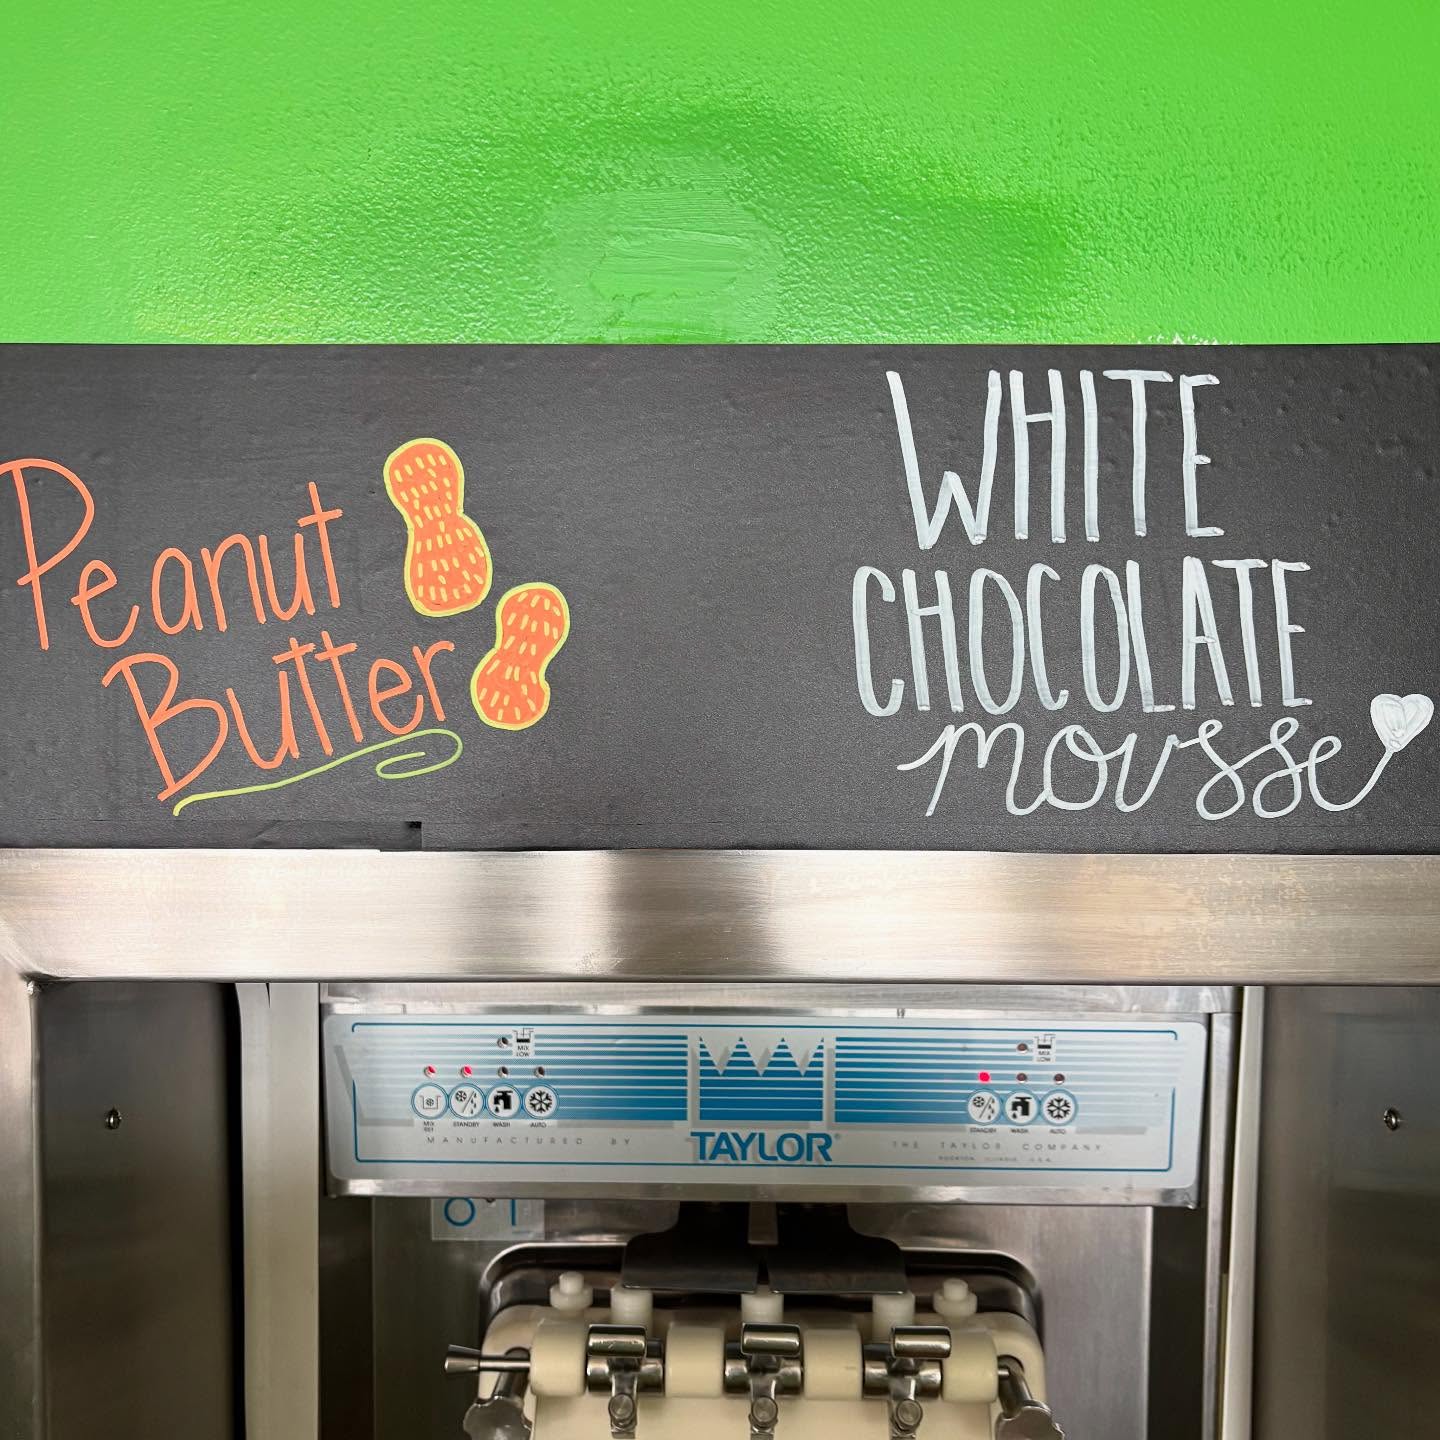 Peanut
Butter
WHITE
CHOCOLATE
mousse
MIX
LOW
MIX
LOW
STANDBY
WASH
AUTO
STANDBY
WASH
AUTO
MANUFACTURED BY
TAYLOR®
THE TAYLOR COMPANY